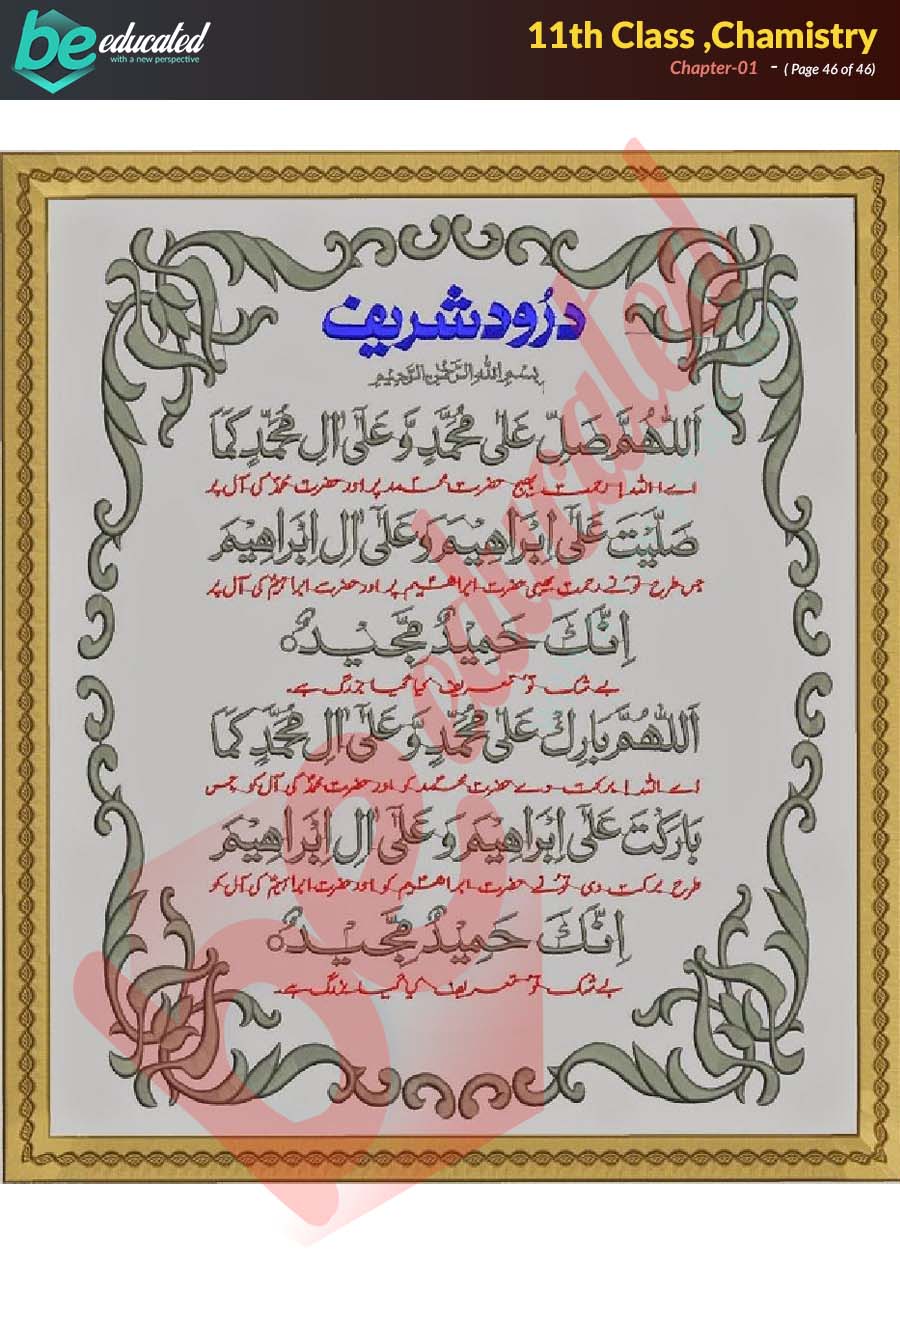 be educated
with a new perspective
11th Class ,Chamistry
Chapter-01 - ( Page 46 of 46)
درود شریف
بِسْمِ اللهِ الرَّحْمٰنِ الرَّحِيْمِ
اَللّٰهُمَّ صَلِّ عَلٰى مُحَمَّدٍ وَّ عَلٰٓى اٰلِ مُحَمَّدٍ كَمَا
اے اللہ! رحمت بھیج حضرت محمد پر اور حضرت محمدؐ کی آل پر
صَلَّيْتَ عَلٰٓى اِبْرَاهِيْمَ وَ عَلٰٓى اٰلِ اِبْرَاهِيْمَ
جس طرح تو نے رحمت بھیجی حضرت ابراھیم پر اور حضرت ابراہیمؑ کی آل پر
اِنَّكَ حَمِيْدٌ مَّجِيْدٌ
بے شک تو تعریف کیا گیا بزرگ ہے۔
اَللّٰهُمَّ بَارِكْ عَلٰى مُحَمَّدٍ وَّ عَلٰٓى اٰلِ مُحَمَّدٍ كَمَا
اے اللہ! برکت دے حضرت محمد کو اور حضرت محمدؐ کی آل کو جس
بَارَكْتَ عَلٰٓى اِبْرَاهِيْمَ وَ عَلٰٓى اٰلِ اِبْرَاهِيْمَ
طرح برکت دی تو نے حضرت ابراھیم کو اور حضرت ابراہیمؑ کی آل کو
اِنَّكَ حَمِيْدٌ مَّجِيْدٌ
بے شک تو تعریف کیا گیا بزرگ ہے۔
be educated